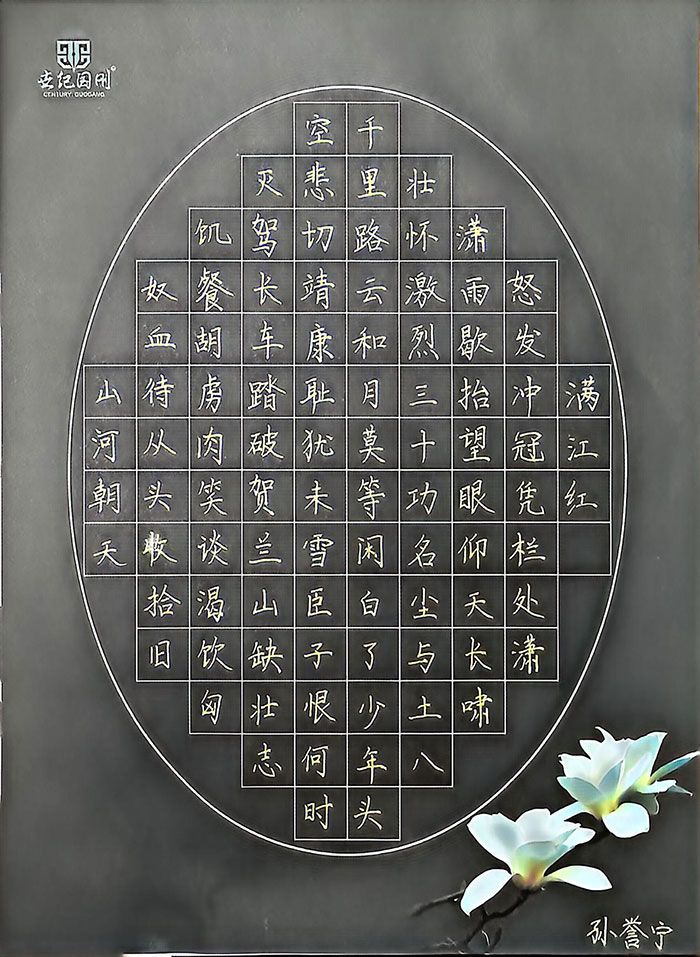 世纪国刚
CENTURY GUOGANG
满江红
怒发冲冠凭栏处潇
潇雨歇抬望眼仰天长啸
壮怀激烈三十功名尘与土八
千里路云和月莫等闲白了少年头
空悲切靖康耻犹未雪臣子恨何时
灭驾长车踏破贺兰山缺壮志
饥餐胡虏肉笑谈渴饮匈
奴血待从头收拾旧
山河朝天
孙誉宁